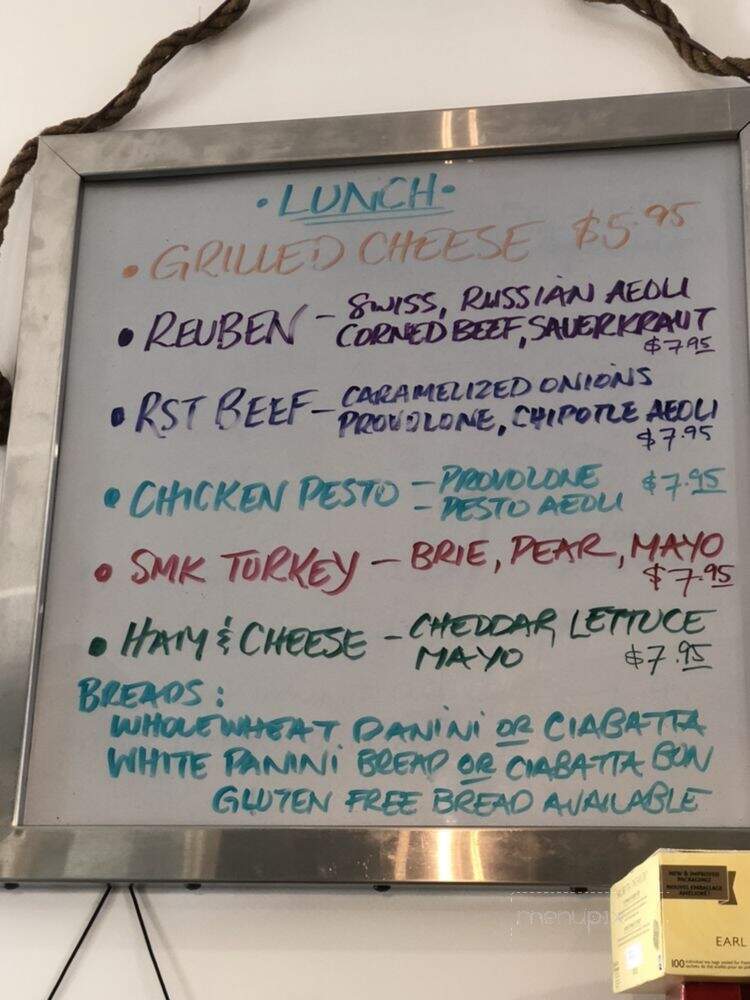 • LUNCH •
• GRILLED CHEESE $5.95
• REUBEN - SWISS, RUSSIAN AEOLI
CORNED BEEF, SAUERKRAUT
$7.95
• RST BEEF - CARAMELIZED ONIONS
PROVOLONE, CHIPOTLE AEOLI
$7.95
• CHICKEN PESTO - PROVOLONE $7.95
- PESTO AEOLI
• SMK TURKEY - BRIE, PEAR, MAYO
$7.95
• HAM & CHEESE - CHEDDAR, LETTUCE
MAYO $7.95
BREADS:
WHOLEWHEAT PANINI OR CIABATTA
WHITE PANINI BREAD OR CIABATTA BUN
GLUTEN FREE BREAD AVAILABLE
NEW & IMPROVED
PACKAGING!
NOUVEL EMBALLAGE
AMÉLIORÉ!
EARL
100